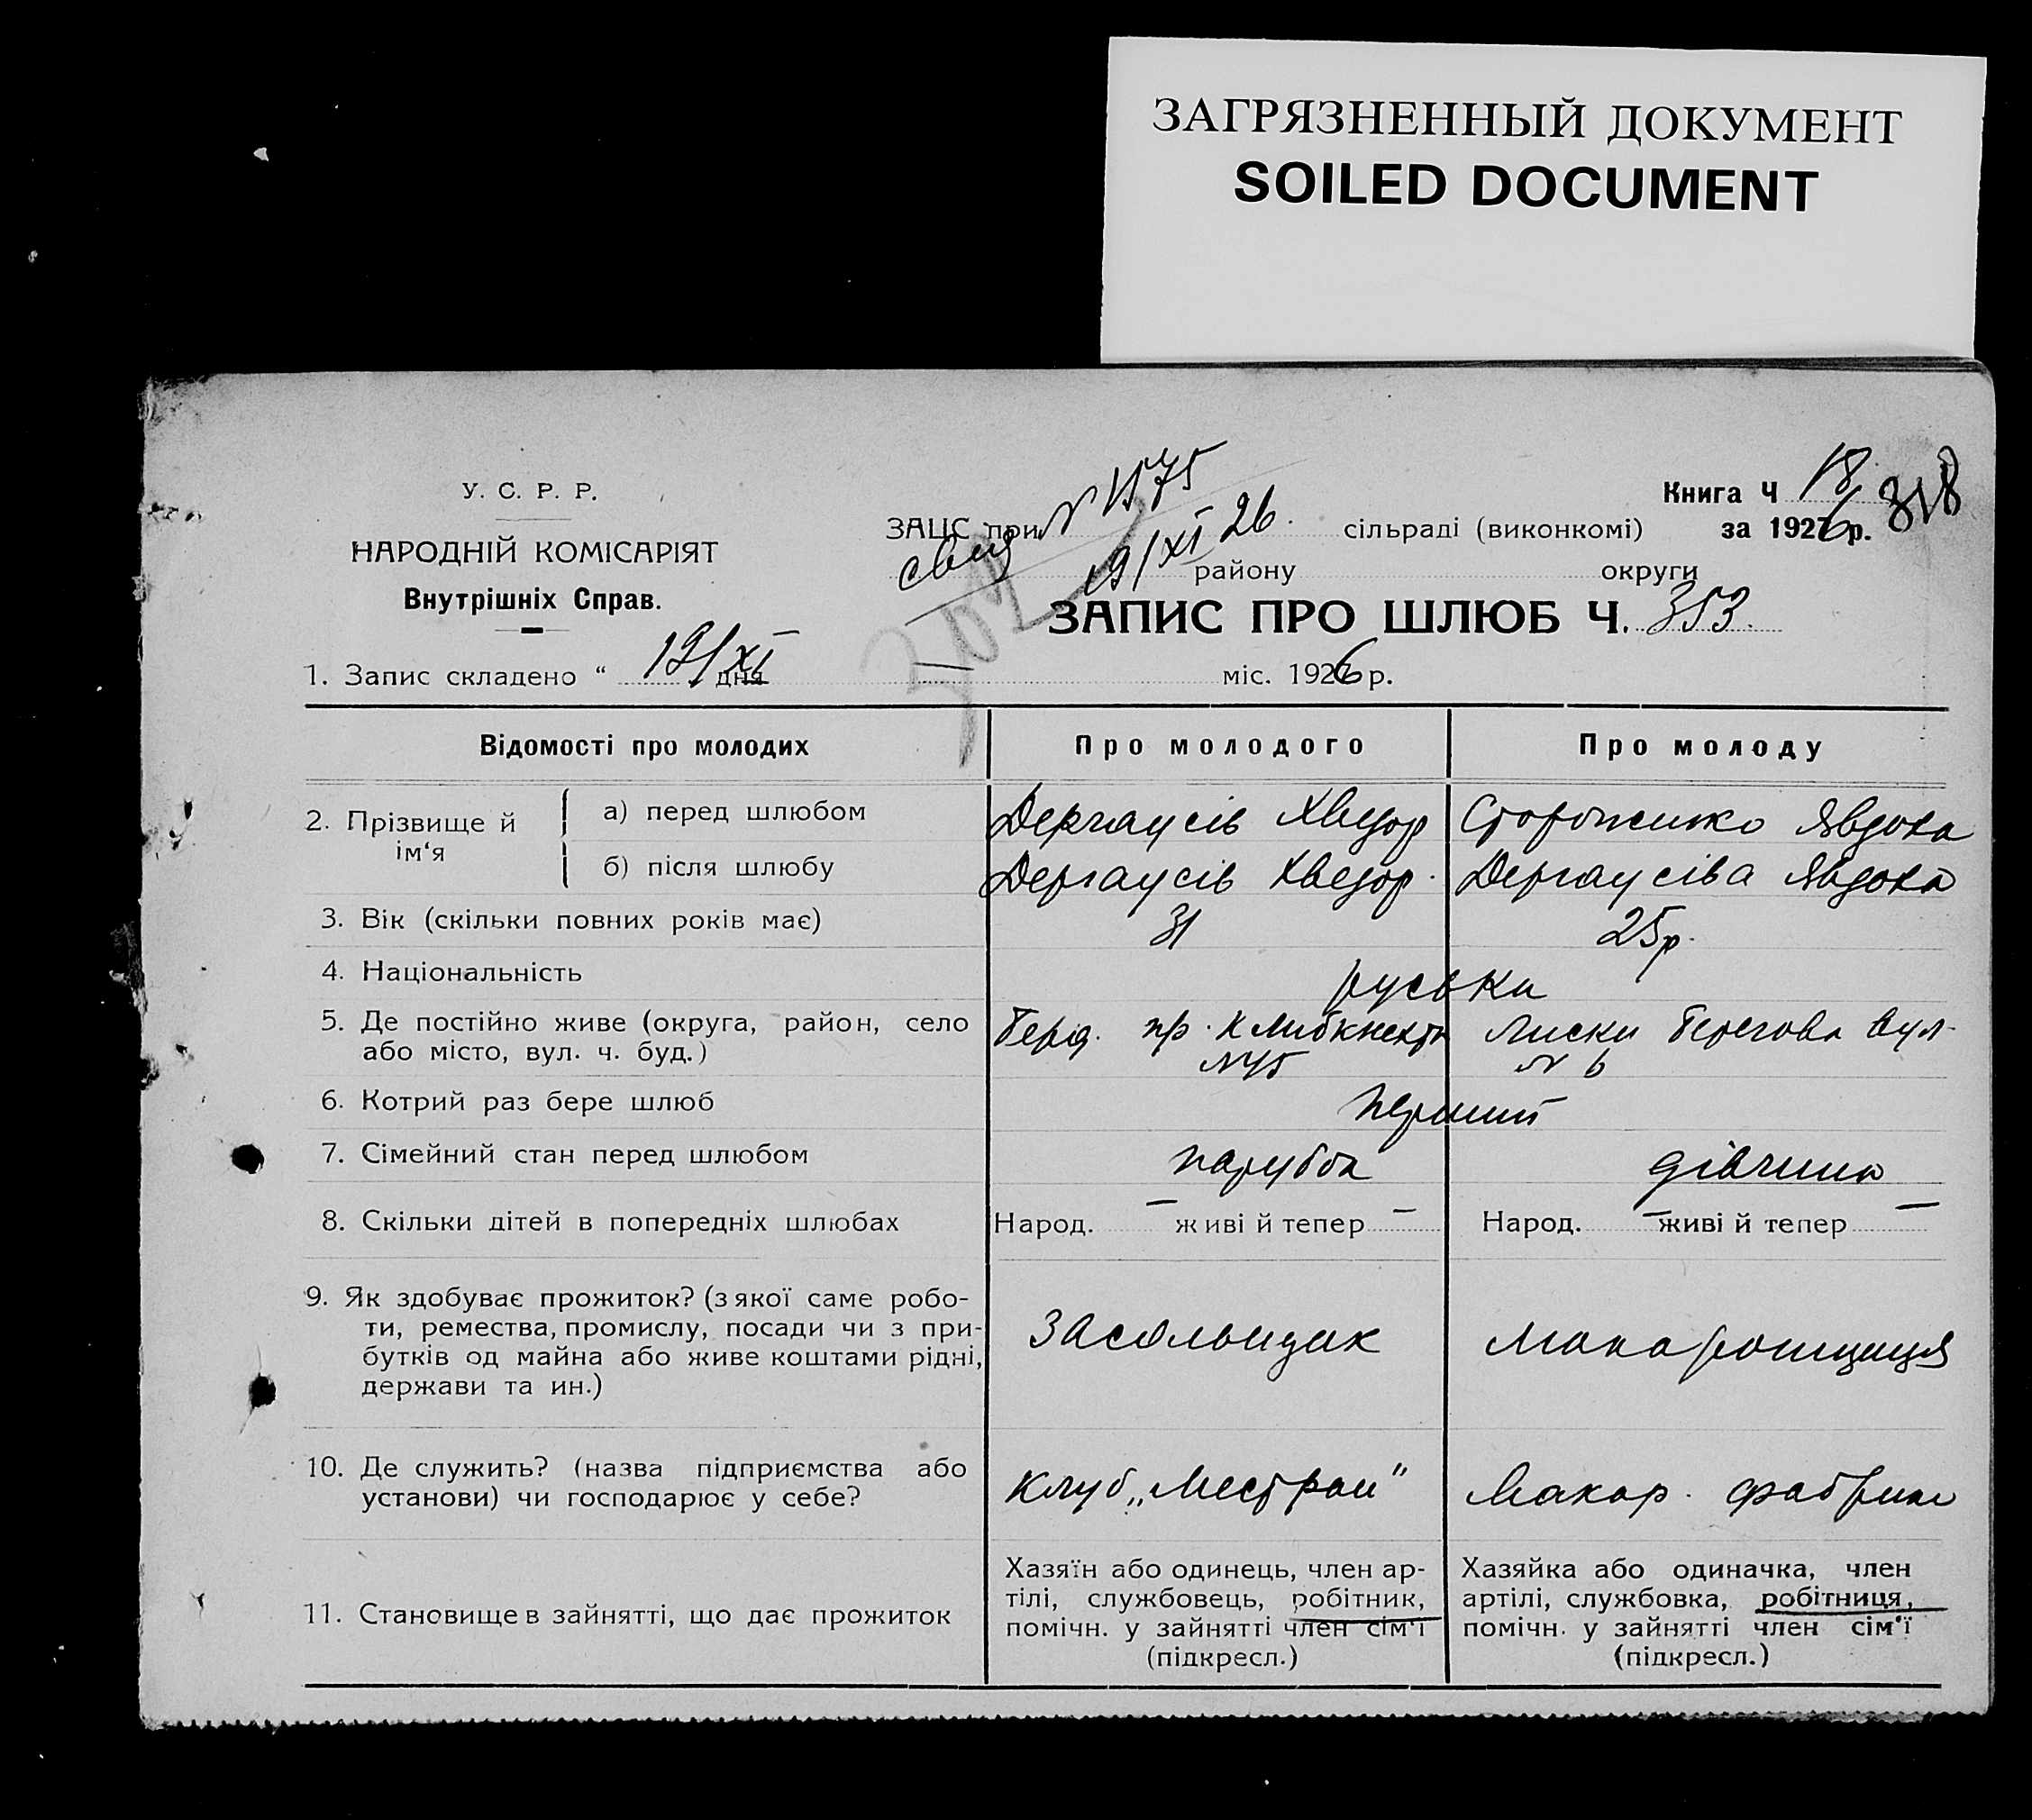 ЗАГРЯЗНЕННЫЙ ДОКУМЕНТ
SOILED DOCUMENT
У. С. Р. Р.
НАРОДНІЙ КОМІСАРІЯТ
Внутрішніх Справ.
Книга Ч 18
за 1926 р. 318
ЗАЦС при N 1575 сільраді (виконкомі)
19/XI 26. району округи
ЗАПИС ПРО ШЛЮБ Ч. 353.
1. Запис складено “ 19/XI дня — міс. 1926 р.
Відомості про молодих Про молодого Про молоду
2. Прізвище й ім‘я
а) перед шлюбом Дергаусів Хведор Стороженко Явдоха
б) після шлюбу Дергаусів Хведор. Дергаусіва Явдоха
3. Вік (скільки повних років має) 31 25 р.
4. Національність руська
5. Де постійно живе (округа, район, село Берд. пр. К Либкнехта Лиски Берегова вул.
або місто, вул. ч. буд.) N 6
6. Котрий раз бере шлюб перший
7. Сімейний стан перед шлюбом парубок дівчина
8. Скільки дітей в попередніх шлюбах Народ. — живі й тепер — Народ. — живі й тепер —
9. Як здобуває прожиток? (з якої саме робо-
ти, ремества, промислу, посади чи з при- Засольщик Макаронщиця
бутків од майна або живе коштами рідні,
держави та ин.)
10. Де служить? (назва підприємства або Клуб „Местран" Макар. фабрика
установи) чи господарює у себе?
11. Становище в зайнятті, що дає прожиток
Хазяїн або одинець, член ар-
тілі, службовець, робітник,
помічн. у зайнятті член сім‘ї
(підкресл.)
Хазяйка або одиначка, член
артілі, службовка, робітниця,
помічн. у зайнятті член сім‘ї
(підкресл.)